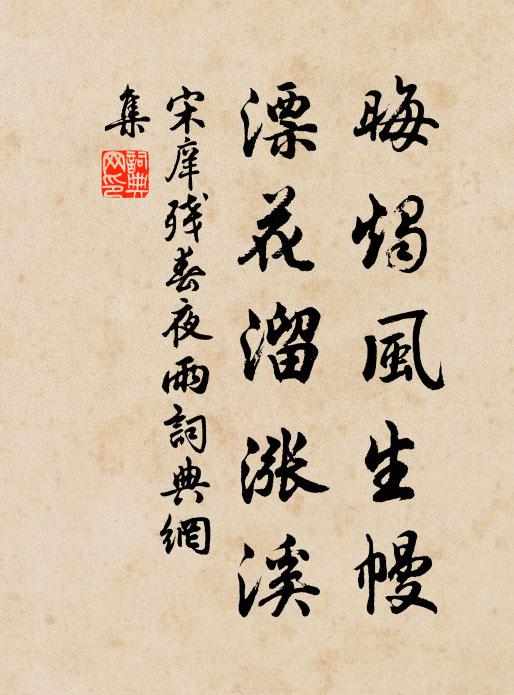 晦燭風生幔
漂花溜漲溪
宋庠殘春夜雨詞典網
集
詞典网印